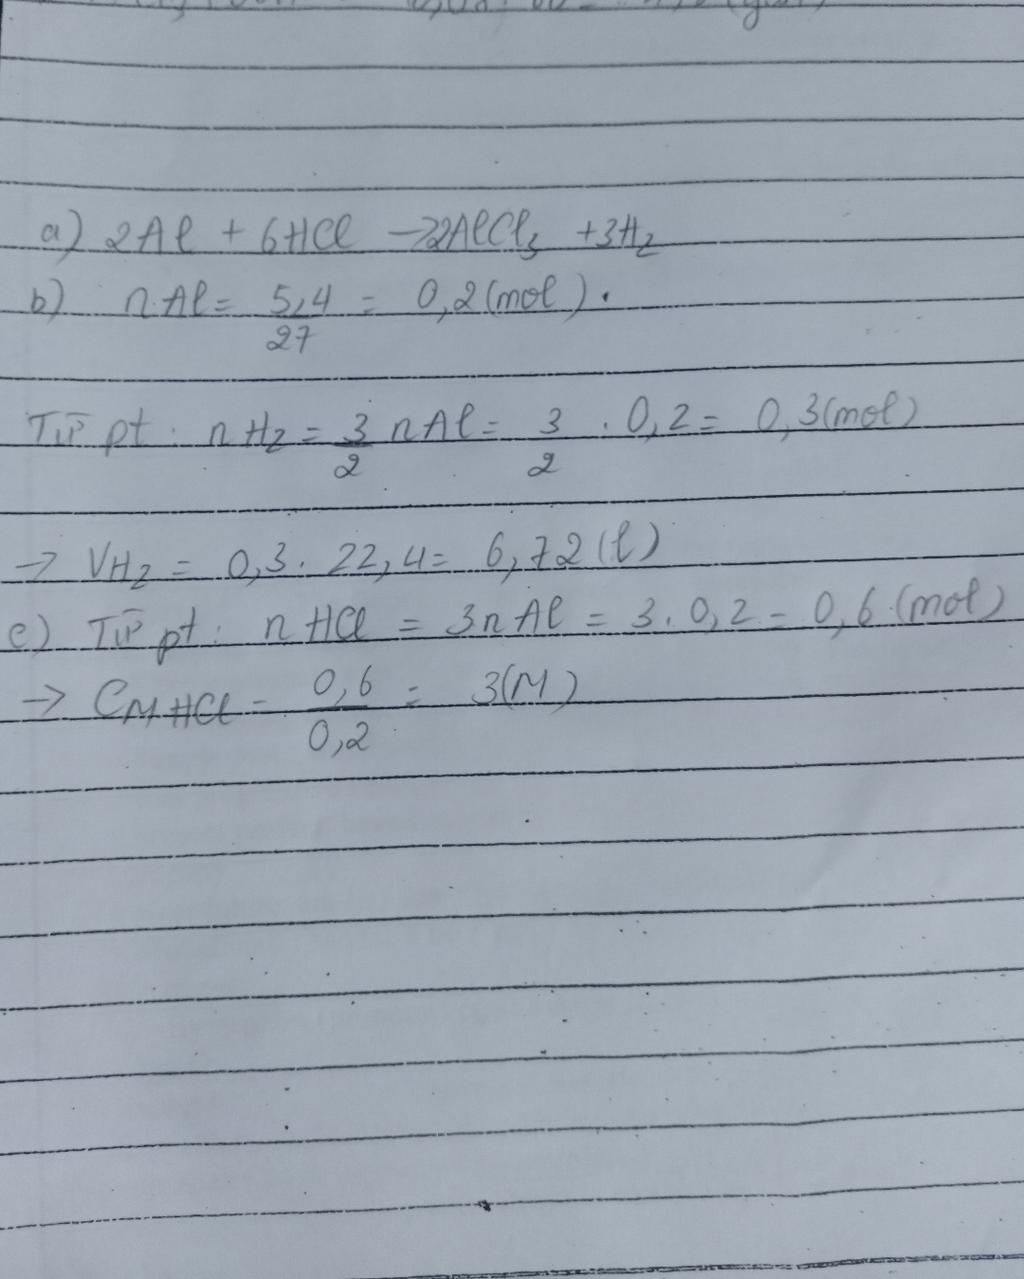 a) 2Al + 6HCl → 2AlCl₃ + 3H₂
b) nAl = 5,4/27 = 0,2 (mol).
Từ pt: nH₂ = 3/2 nAl = 3/2 . 0,2 = 0,3 (mol)
→ VH₂ = 0,3 . 22,4 = 6,72 (l)
c) Từ pt: nHCl = 3nAl = 3 . 0,2 = 0,6 (mol)
→ CM HCl = 0,6/0,2 = 3(M)